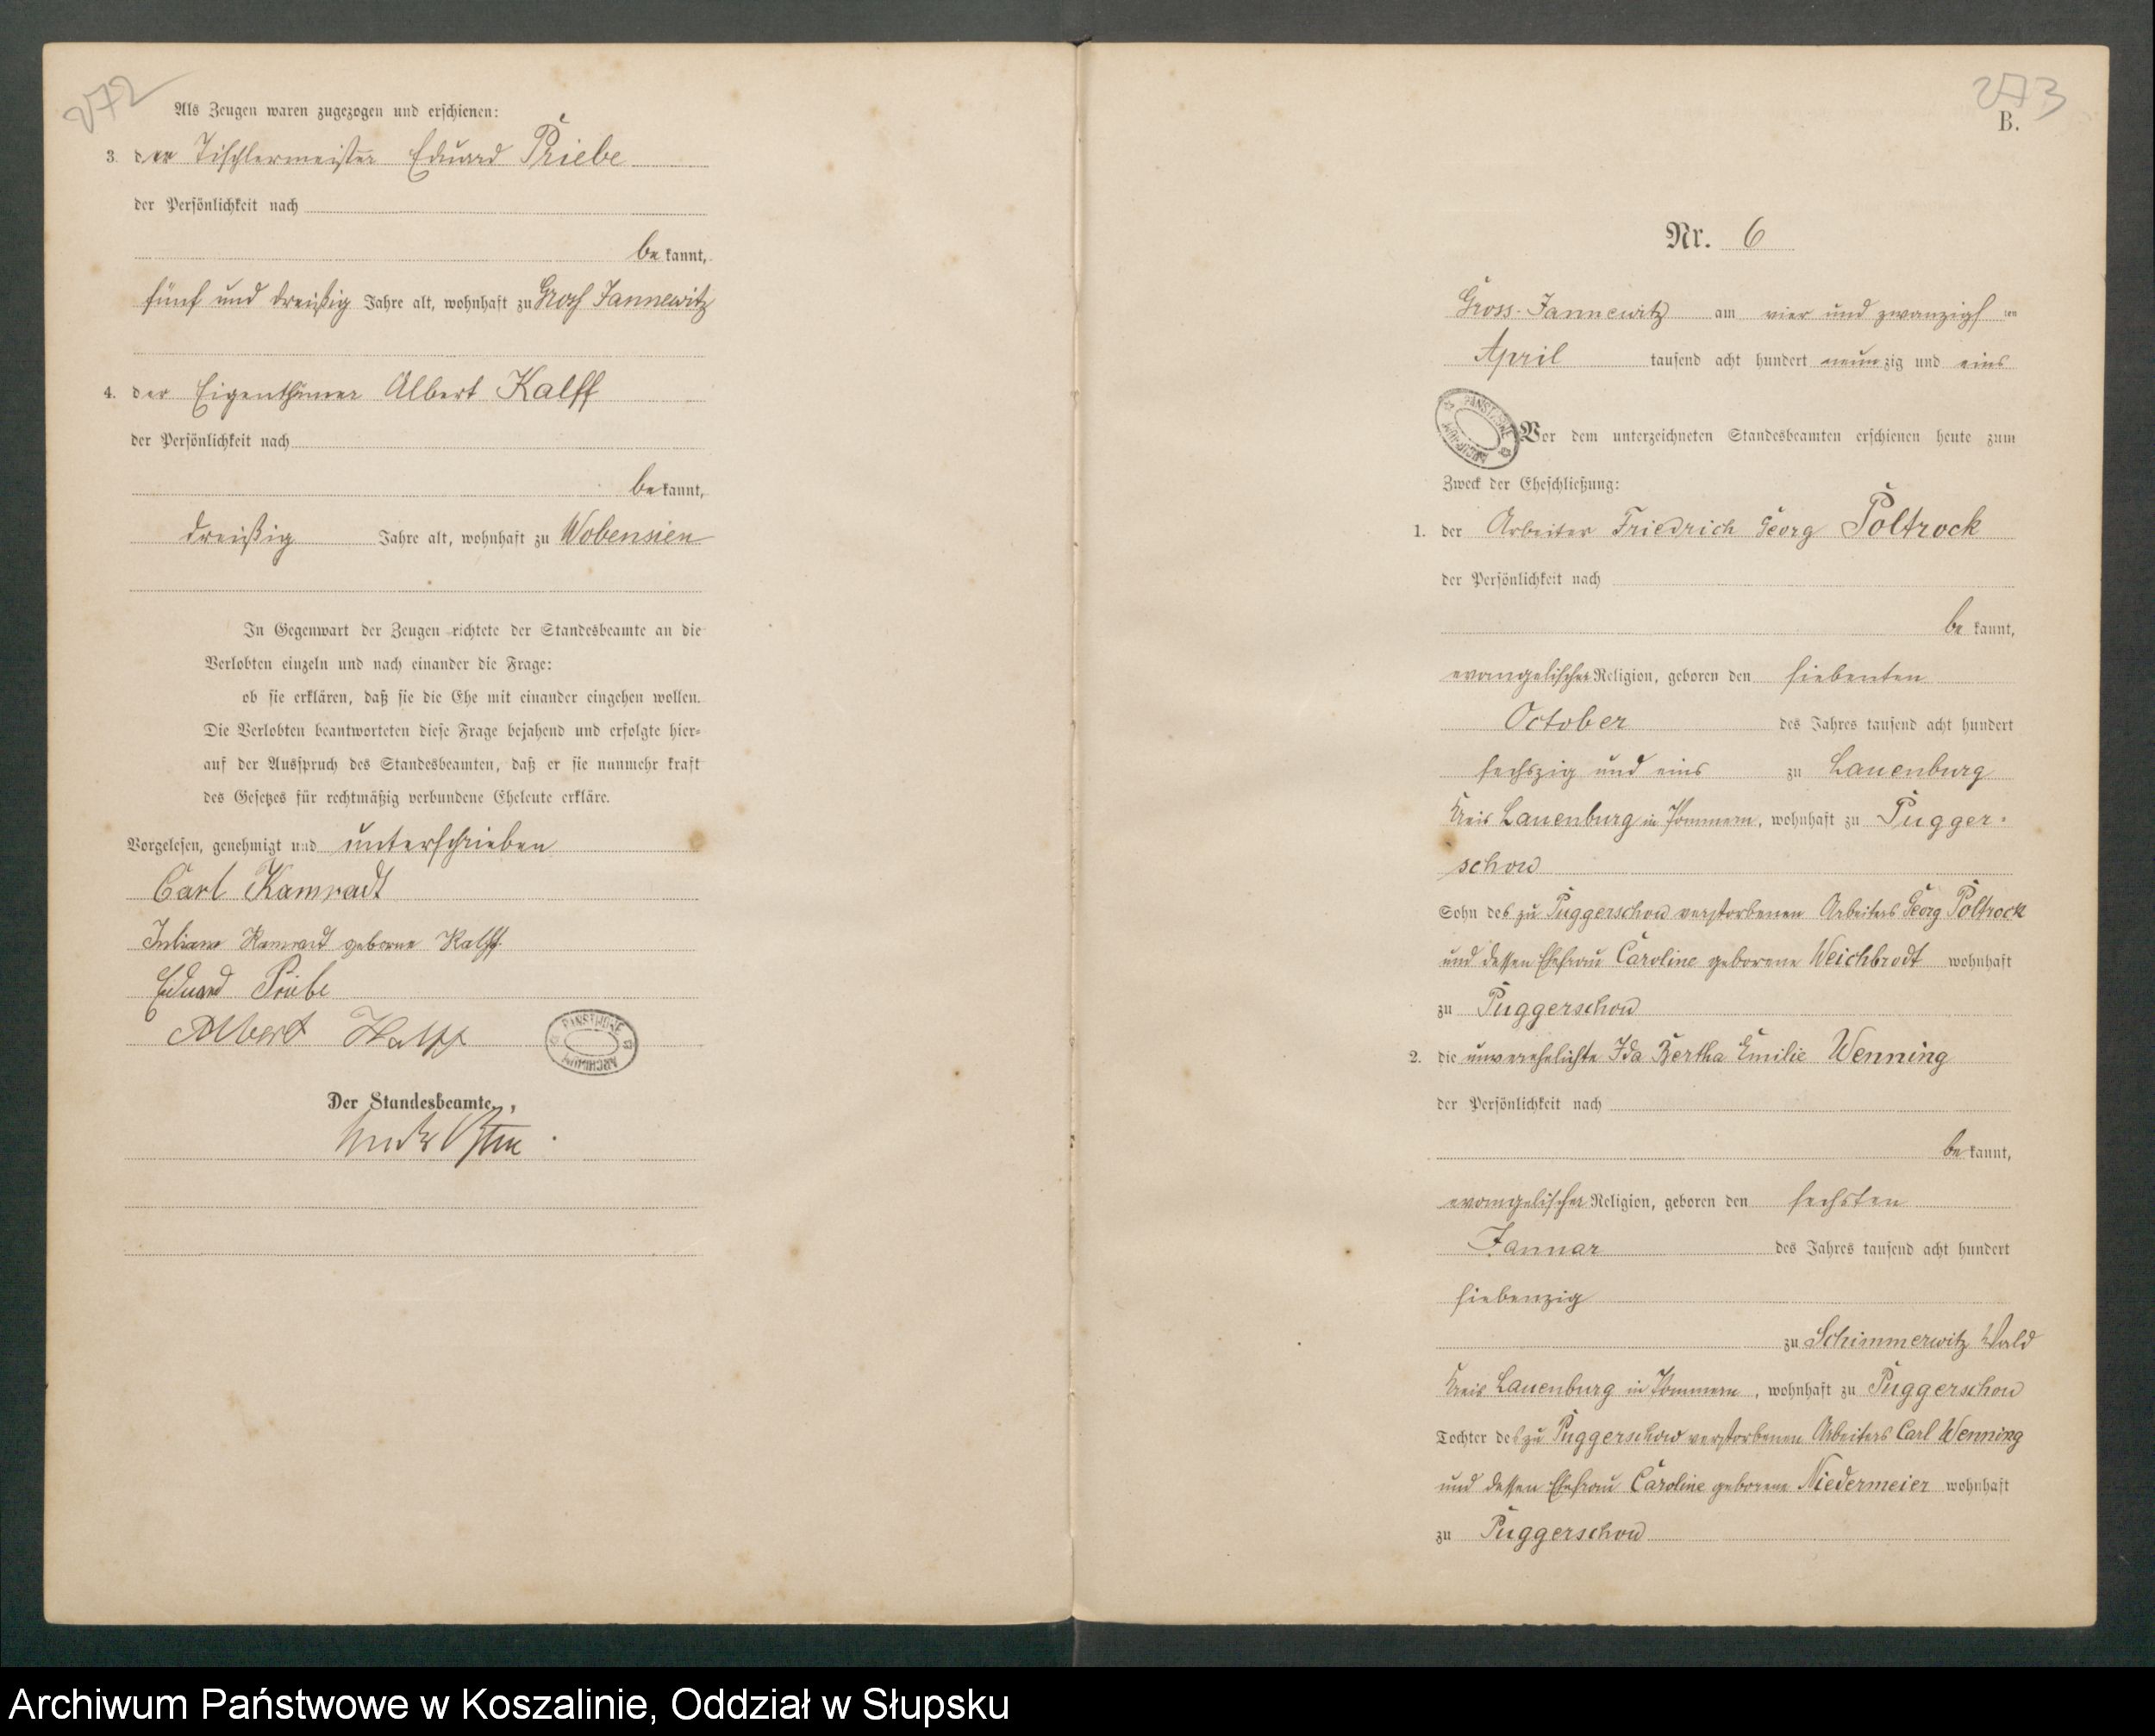 272
Als Zeugen waren zugezogen und erschienen:
3. der Tischlermeister Eduard Priebe
der Persönlichkeit nach
bekannt,
fünf und dreißig Jahre alt, wohnhaft zu Groß Jannewitz
4. der Eigenthümer Albert Kalff
der Persönlichkeit nach
bekannt,
dreißig Jahre alt, wohnhaft zu Wobensien
In Gegenwart der Zeugen richtete der Standesbeamte an die
Verlobten einzeln und nach einander die Frage:
ob sie erklären, daß sie die Ehe mit einander eingehen wollen.
Die Verlobten beantworteten diese Frage bejahend und erfolgte hier-
auf der Ausspruch des Standesbeamten, daß er sie nunmehr kraft
des Gesetzes für rechtmäßig verbundene Eheleute erkläre.
Vorgelesen, genehmigt und unterschrieben
Carl Kamradt
Juliane Kamradt geborne Kalff
Eduard Priebe
Albert Kalff
PAŃSTWOWE ARCHIWUM
Der Standesbeamte.
273
B.
Nr. 6
Gross-Jannewitz am vier und zwanzigsten
April tausend acht hundert neunzig und eins
PAŃSTWOWE ARCHIWUM
Vor dem unterzeichneten Standesbeamten erschienen heute zum
Zweck der Eheschließung:
1. der Arbeiter Friedrich Georg Poltrock
der Persönlichkeit nach
bekannt,
evangelischer Religion, geboren den siebenten
October des Jahres tausend acht hundert
sechszig und eins zu Lauenburg
Kreis Lauenburg in Pommern, wohnhaft zu Pugger-
schow
Sohn des zu Puggerschow verstorbenen Arbeiters Georg Poltrock
und dessen Ehefrau Caroline geborene Weichbrodt wohnhaft
zu Puggerschow
2. die unverehelichte Ida Bertha Emilie Wenning
der Persönlichkeit nach
bekannt,
evangelischer Religion, geboren den sechsten
Januar des Jahres tausend acht hundert
siebenzig
zu Schimmerwitz Wald
Kreis Lauenburg in Pommern, wohnhaft zu Puggerschow
Tochter des zu Puggerschow verstorbenen Arbeiters Carl Wenning
und dessen Ehefrau Caroline geborene Niedermeier wohnhaft
zu Puggerschow
Archiwum Państwowe w Koszalinie, Oddział w Słupsku